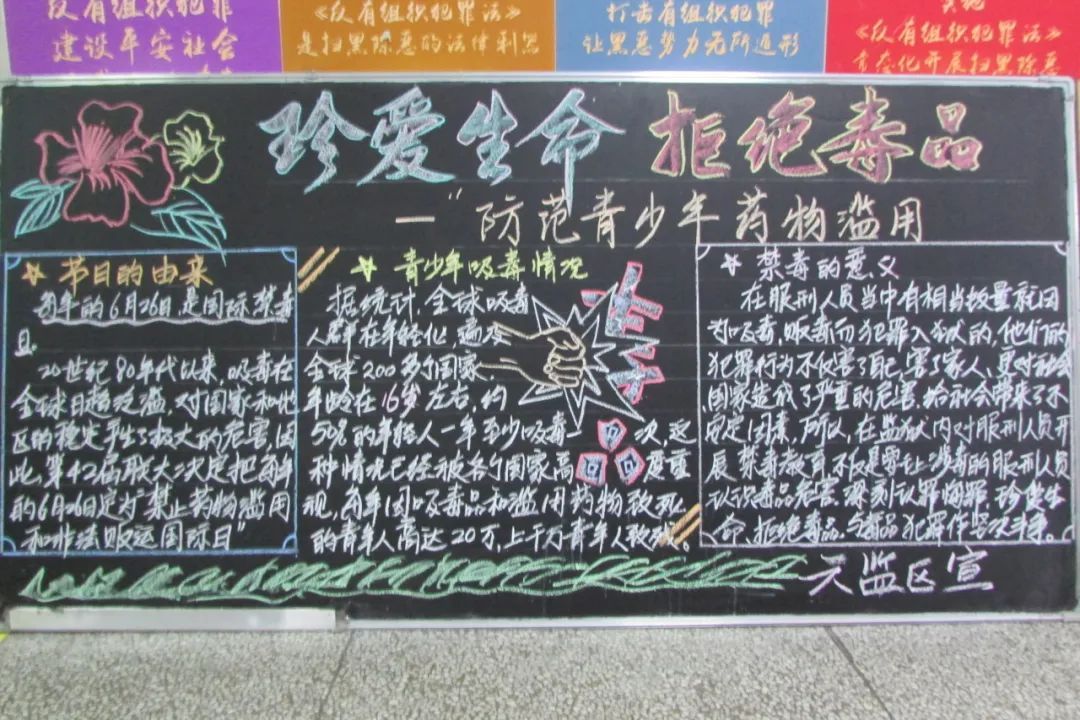 反有组织犯罪
建设平安社会
《反有组织犯罪法》
是扫黑除恶的法律利器
打击有组织犯罪
让黑恶势力无所遁形
《反有组织犯罪法》
常态化开展扫黑除恶
珍爱生命 拒绝毒品
一"防范青少年药物滥用
节日的由来
每年的6月26日,是国际禁毒
日
20世纪80年代以来,吸毒在
全球日趋泛滥,对国家和地
区的稳定产生了极大的危害,因
此,第42届联大决定把每年
的6月26日定为"禁止药物滥用
和非法贩运国际日"
青少年吸毒情况
据统计,全球吸毒
人群在年轻化,遍及
全球200多个国家,
年龄在16岁左右,约
50%的年轻人一年至少吸毒一次,这
种情况已经被各个国家高度重
视,每年因吸毒品和滥用药物致死
的青年人高达20万,上千万青年人致残。
禁毒的意义
在服刑人员当中有相当数量就因
为吸毒,贩毒而犯罪入狱的,他们的
犯罪行为不仅害了自己,害了家人,更对社会
国家造成了严重的危害.给社会带来了不
安定因素,所以,在监狱内对服刑人员开
展禁毒教育,不仅是要让涉毒的服刑人员
认识毒品危害.深刻认罪悔罪.珍爱生
命,拒绝毒品.与毒品犯罪作坚决斗争。
八监区宣